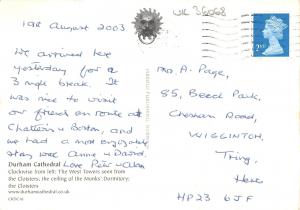 UK 36068
19th August 2003.
We arrived here
yesterday for a
3 night break. It
was nice to visit
our friends en route at
Chatteris & Boston, and
we had a most enjoyable
stay with Anne & David.
Love Peter &
Durham Cathedral
Clockwise from left: The West Towers seen from
the Cloisters; the ceiling of the Monks' Dormitory;
the Cloisters
www.durhamcathedral.co.uk
Mrs A. Page,
85, Beech Park,
Chesham Road,
WIGGINTON,
Tring,
Herts
HP23 6JF
2ND